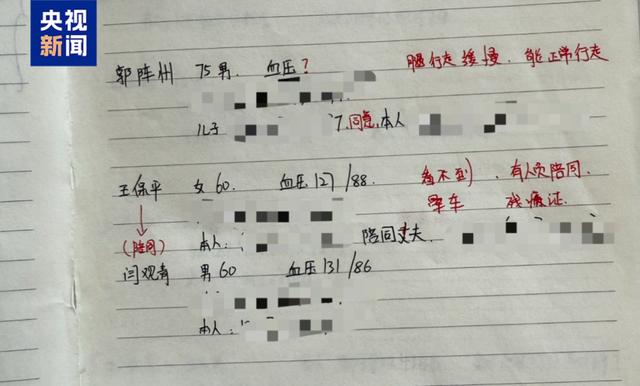 央视新闻
郭阵州 75 男. 血压? 腿行走缓慢, 能正常行走
儿子 7.同意,本人
王保平 女 60. 血压 127/88. 看不到, 有人员陪同.
牵车 残疾证.
(陪同) 本人: 陪同丈夫.
闫观青 男 60 血压 131/86
本人: